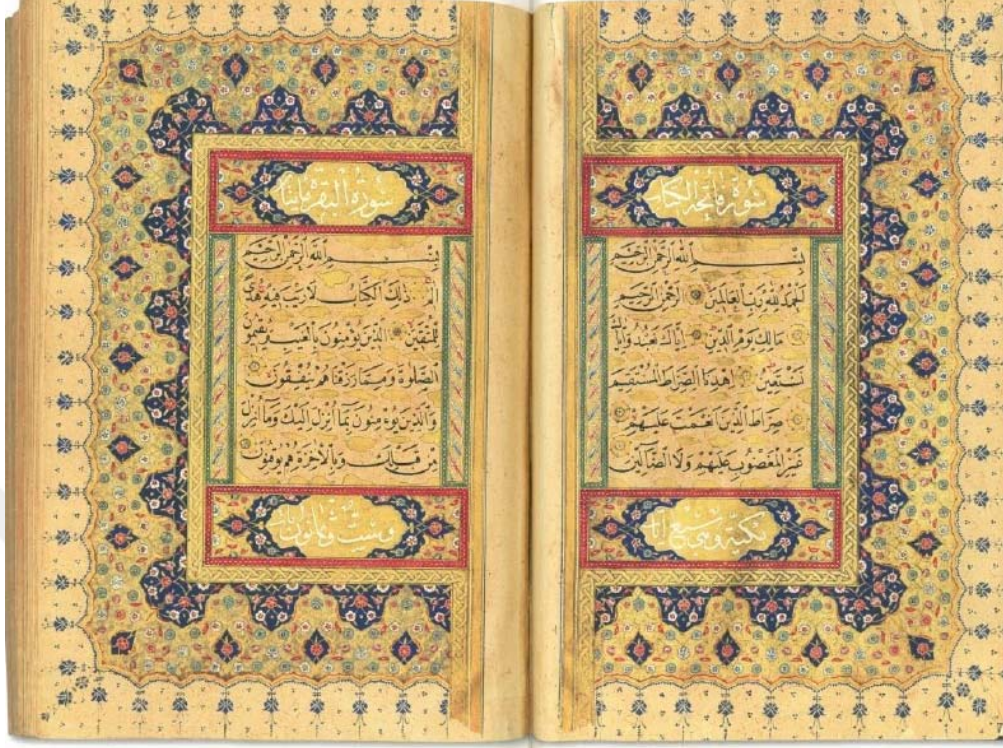 سُورَةُ فَاتِحَةِ الْكِتَابِ
بِسْمِ اللَّهِ الرَّحْمَٰنِ الرَّحِيمِ
اَلْحَمْدُ لِلَّهِ رَبِّ الْعَالَمِينَ الرَّحْمَٰنِ الرَّحِيمِ
مَالِكِ يَوْمِ الدِّينِ اِيَّاكَ نَعْبُدُ وَاِيَّاكَ
نَسْتَعِينُ اِهْدِنَا الصِّرَاطَ الْمُسْتَقِيمَ
صِرَاطَ الَّذِينَ اَنْعَمْتَ عَلَيْهِمْ
غَيْرِ الْمَغْضُوبِ عَلَيْهِمْ وَلَا الضَّالِّينَ
مكية وهى سبع آيات
سُورَةُ الْبَقَرَةِ مِائَتَانِ
بِسْمِ اللَّهِ الرَّحْمَٰنِ الرَّحِيمِ
الٓمٓ ذَٰلِكَ الْكِتَابُ لَا رَيْبَ فِيهِ هُدًى
لِلْمُتَّقِينَ اَلَّذِينَ يُؤْمِنُونَ بِالْغَيْبِ وَيُقِيمُونَ
الصَّلٰوةَ وَمِمَّا رَزَقْنَاهُمْ يُنْفِقُونَ
وَالَّذِينَ يُؤْمِنُونَ بِمَا اُنْزِلَ اِلَيْكَ وَمَا اُنْزِلَ
مِنْ قَبْلِكَ وَبِالْاٰخِرَةِ هُمْ يُوقِنُونَ
وست وثمانون آية